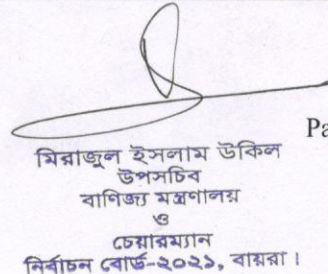 Pa
মিরাজুল ইসলাম উকিল
উপসচিব
বাণিজ্য মন্ত্রণালয়
ও
চেয়ারম্যান
নির্বাচন বোর্ড-২০২১, বায়রা।